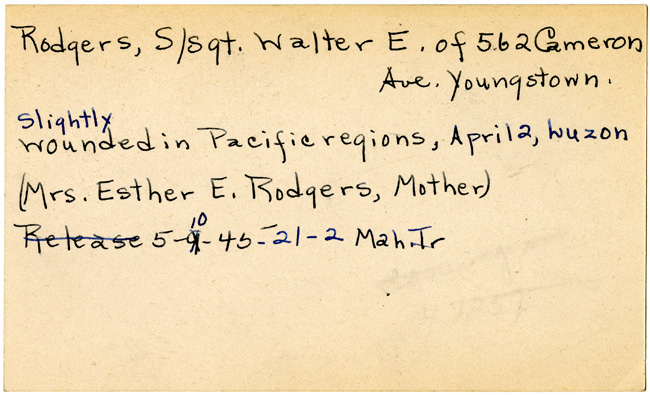 Rodgers, S/Sgt. Walter E. of 562 Cameron
Ave. Youngstown.
Slightly
wounded in Pacific regions, April 2, Luzon
(Mrs. Esther E. Rodgers, Mother)
Release 5-10-45-21-2 Mah. Tr